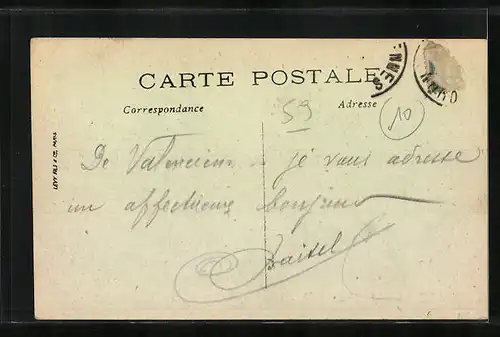 CARTE POSTALE
Correspondance
Adresse
59
10
NNES
NORD
LEVY FILS & CIE, PARIS
De Valenciennes je vous adresse
un affectueux bonjour